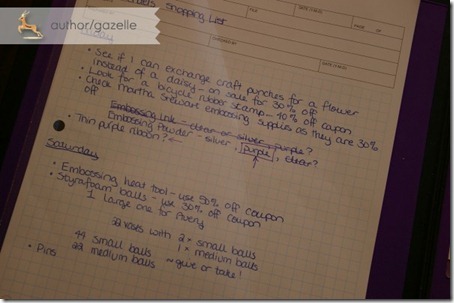 author/gazelle
Shopping List
• See if I can exchange craft punches for a flower
instead of a daisy - on sale for 30% off
• Look for a bicycle rubber stamp - 40% off coupon
• Check Martha Stewart embossing supplies as they are 30%
off
Embossing Ink - clear or silver, purple?
Embossing Powder - silver, purple, clear?
• Thin purple ribbon?
Saturday
• Embossing heat tool - use 50% off coupon
• Styrofoam balls - use 30% off coupon
1 large one for Avery
22 vases with 2x small balls
1x medium balls
44 small balls
22 medium balls ~ give or take!
• Pins